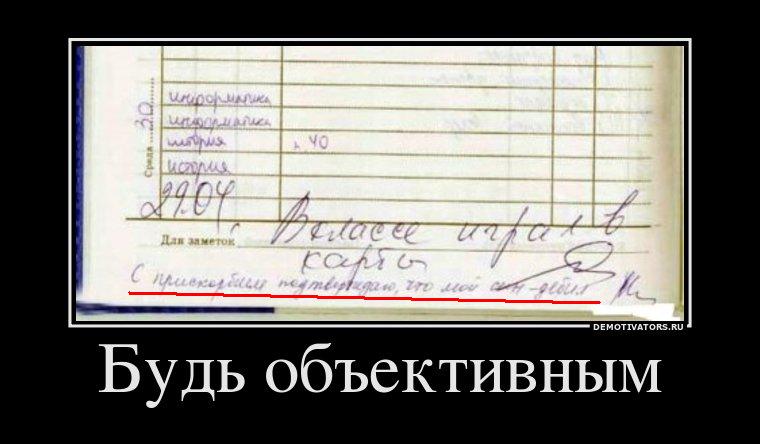 информатика
информатика
история п. 40
история
Среда 30
29.04
В классе играл в
Для заметок
карты
С прискорбием подтверждаю, что мой сын-дебил
DEMOTIVATORS.RU
Будь объективным